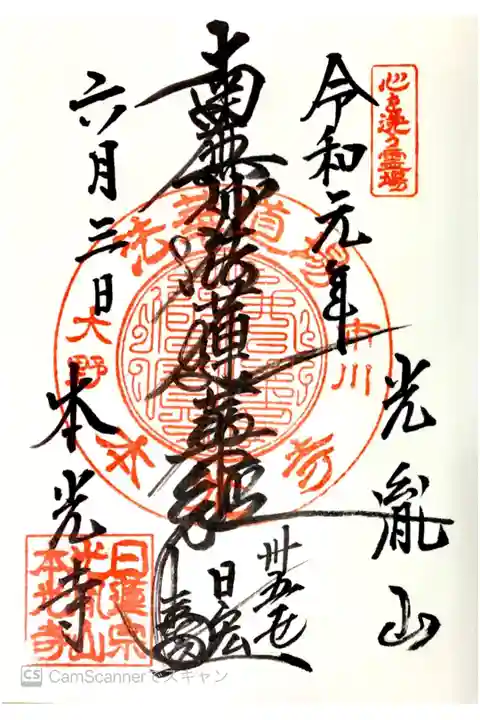 心を洗う霊場
令和元年
光胤山
南無妙法蓮華経
丗五世
日宏
六月三日
本光寺
市川
大野
日蓮宗
光胤山
本光寺
CS CamScannerでスキャン